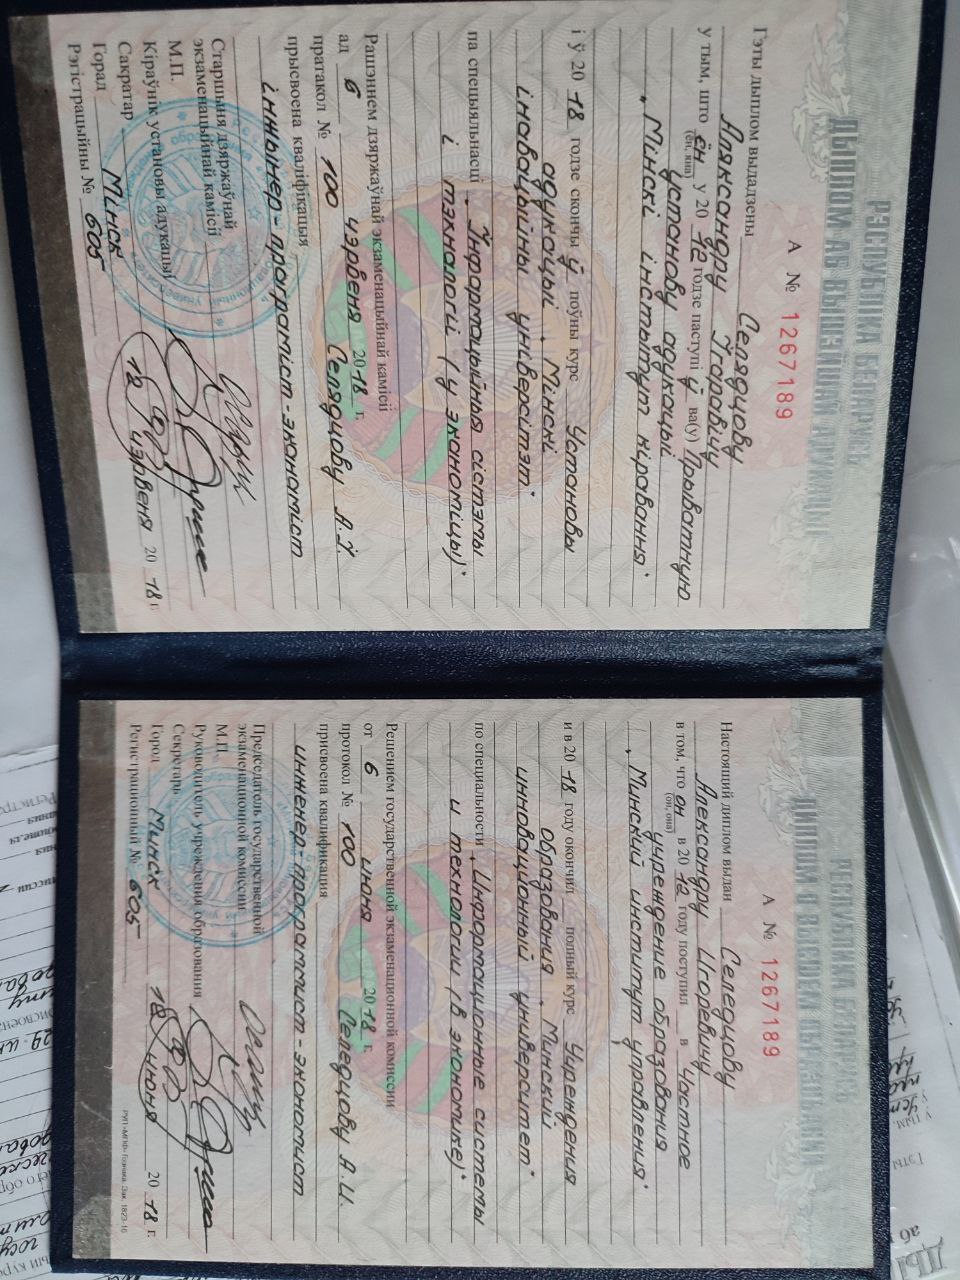 РЭСПУБЛІКА БЕЛАРУСЬ
ДЫПЛОМ АБ ВЫШЭЙШАЙ АДУКАЦЫІ
А № 1267189
Гэты дыплом выдадзены Селядцову
Аляксандру Ігаравічу
у тым, што ён у 20 12 годзе паступі ў ва(у) Прыватную
(ён, яна)
установу адукацыі
„Мінскі інстытут кіравання"
і ў 20 18 годзе скончы ў поўны курс Установы
адукацыі „Мінскі
інавацыйны універсітэт"
па спецыяльнасці „Інфармацыйныя сістэмы
і тэхналогіі (у эканоміцы)"
Рашэннем дзяржаўнай экзаменацыйнай камісіі
ад 6 чэрвеня 2018 г.
пратакол № 100 Селядцову А.І.
прысвоена кваліфікацыя
інжынер-праграміст-эканаміст
Старшыня дзяржаўнай
экзаменацыйнай камісіі
М.П.
Кіраўнік установы адукацыі
Сакратар
Горад Мінск 12 чэрвеня 20 18 г.
Рэгістрацыйны № 605
РЕСПУБЛИКА БЕЛАРУСЬ
ДИПЛОМ О ВЫСШЕМ ОБРАЗОВАНИИ
А № 1267189
Настоящий диплом выдан Селедцову
Александру Игоревичу
в том, что он в 20 12 году поступил в Частное
(он, она)
учреждение образования
„Минский институт управления"
и в 20 18 году окончил полный курс Учреждения
образования „Минский
инновационный университет"
по специальности „Информационные системы
и технологии (в экономике)"
Решением государственной экзаменационной комиссии
от 6 июня 2018 г.
протокол № 100 Селедцову А.И.
присвоена квалификация
инженер-программист-экономист
Председатель государственной
экзаменационной комиссии
М.П.
Руководитель учреждения образования
Секретарь
Город Минск 12 июня 20 18 г.
Регистрационный № 605